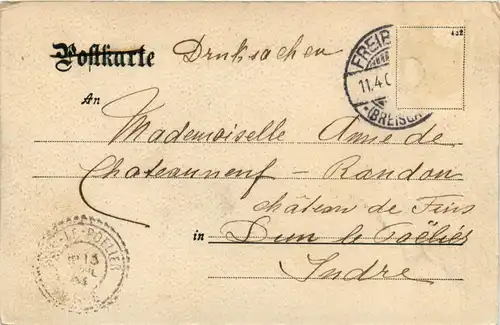 Postkarte Drucksachen
432
FREIB
11.4.0
(BREISGA
An
Mademoiselle Anne de
Chateauneuf - Randon
château de Fins
in Dun le Poëlier
Indre
LE-POELIER
13